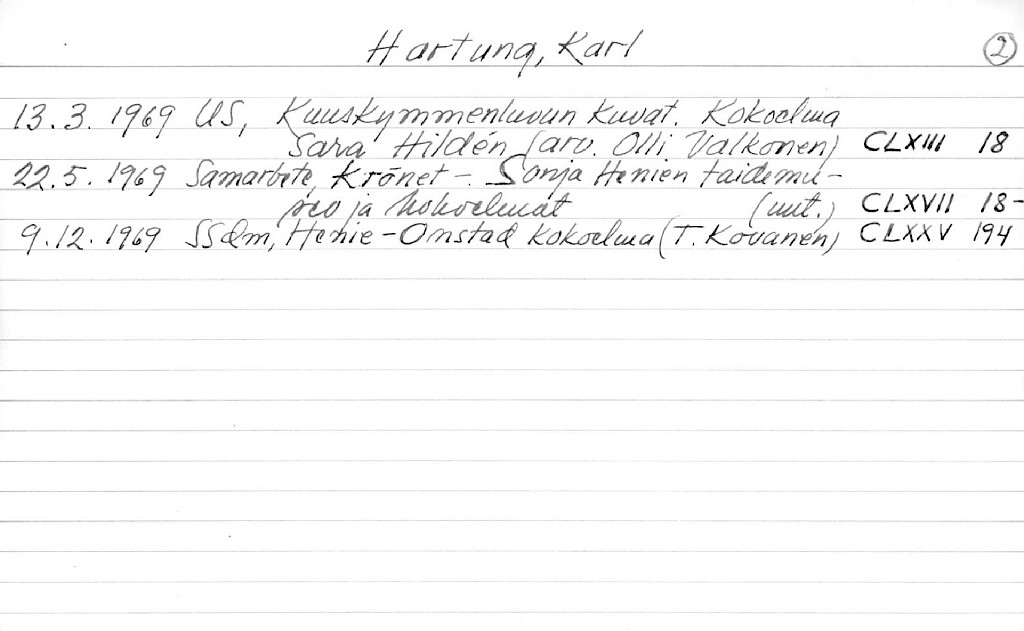 Hartung, Karl 2
13.3. 1969 US, Kuuskymmenluvun kuvat. Kokoelma
Sara Hildén (arv. Olli Valkonen) CLXIII 18
22.5. 1969 Samarbete, Krönet - Sonja Henien taidemu-
seo ja kokoelmat (uut.) CLXVII 18-
9.12. 1969 SSdm, Henie-Onstad kokoelma (T. Kovanen) CLXXV 194